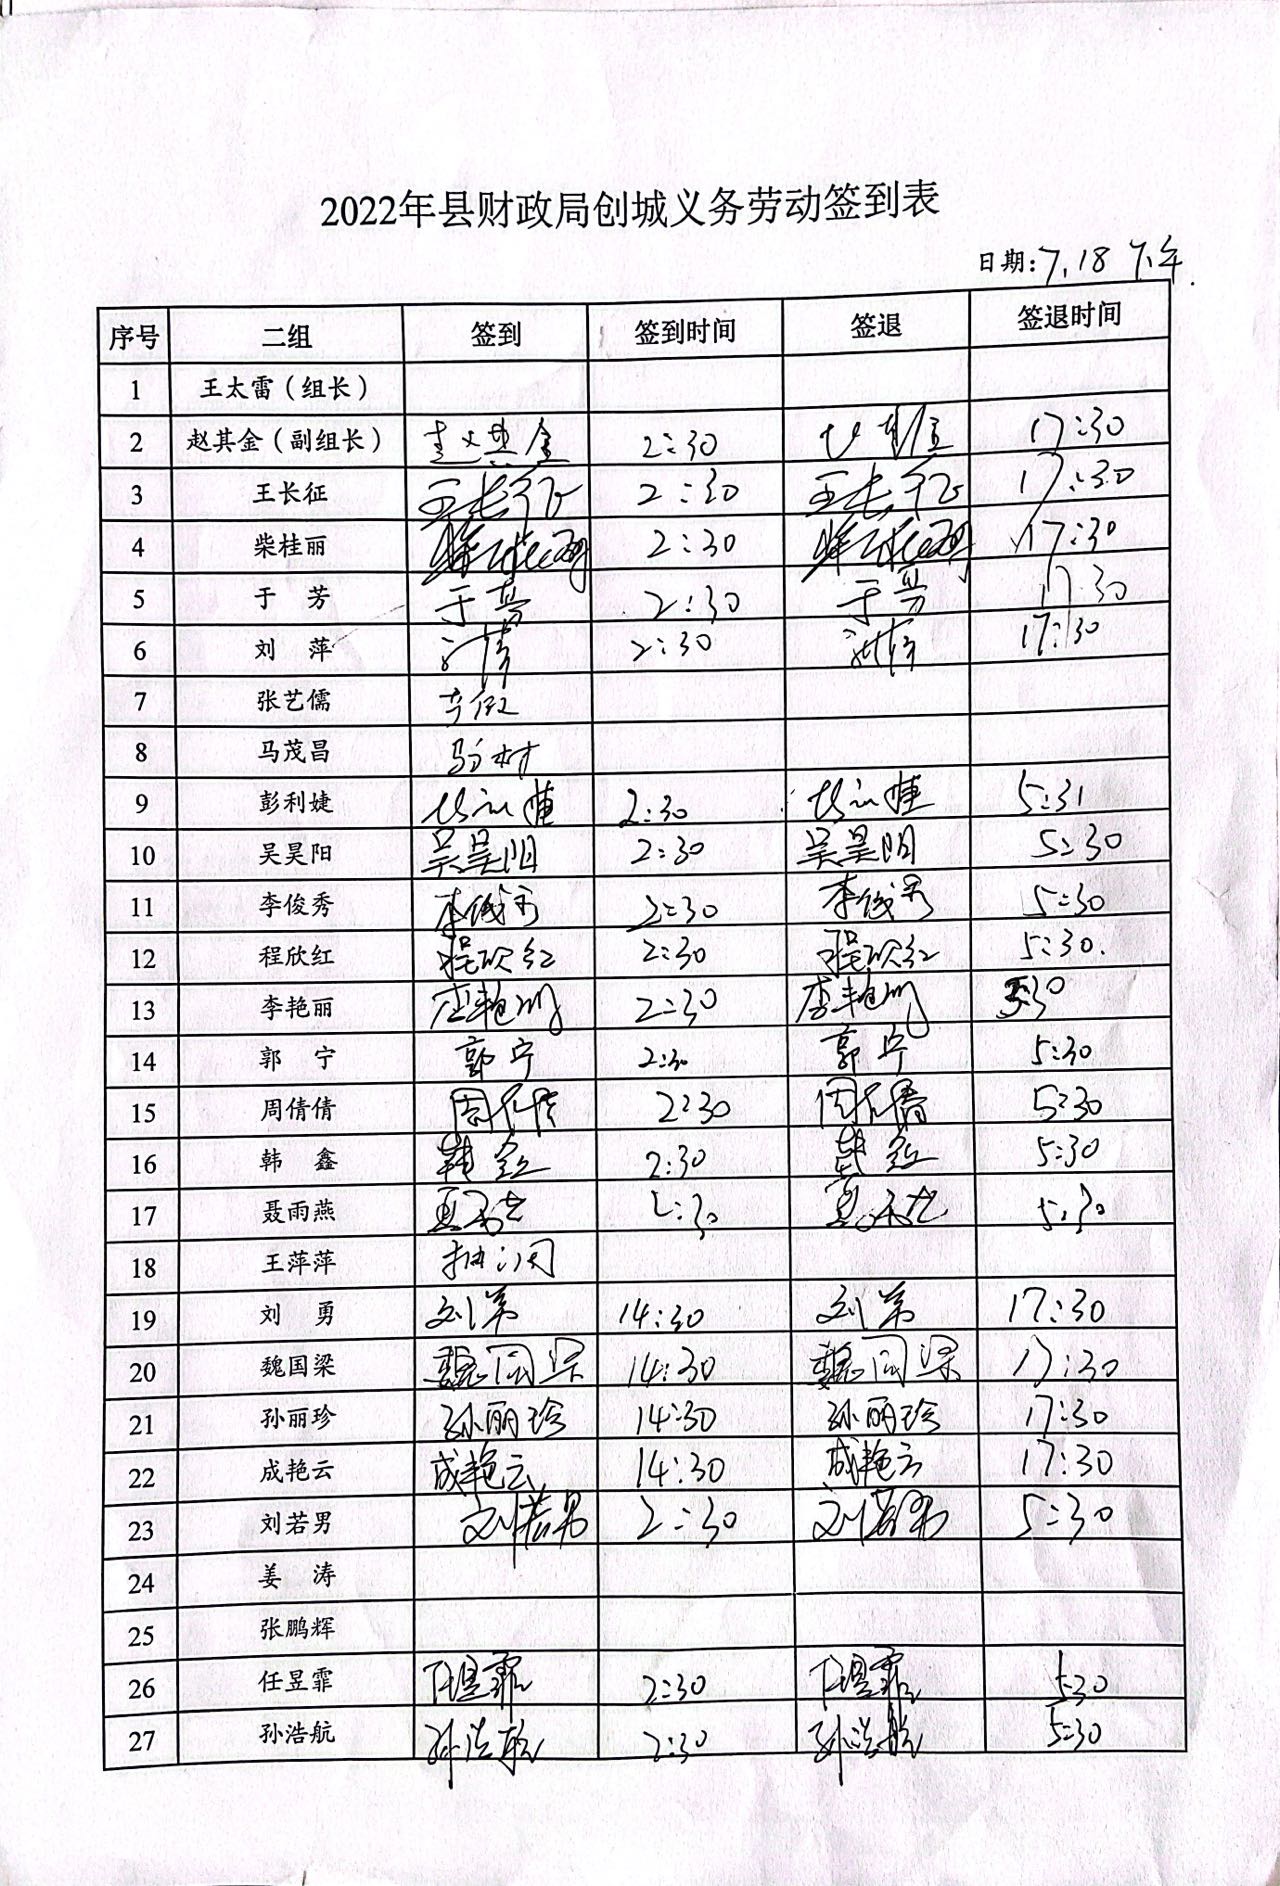 2022年县财政局创城义务劳动签到表
日期:7.18 下午
序号 二组 签到 签到时间 签退 签退时间
1 王太雷（组长）
2 赵其金（副组长） 赵其金 2:30 17:30
3 王长征 王长征 2:30 王长征 17:30
4 柴桂丽 柴桂丽 2:30 柴桂丽 17:30
5 于 芳 于芳 2:30 于芳 17:30
6 刘 萍 2:30 17:30
7 张艺儒
8 马茂昌
9 彭利婕 2:30 5:31
10 吴昊阳 吴昊阳 2:30 吴昊阳 5:30
11 李俊秀 李俊秀 2:30 李俊秀 5:30
12 程欣红 程欣红 2:30 程欣红 5:30.
13 李艳丽 李艳丽 2:30 李艳丽 5:30
14 郭 宁 郭宁 2:30 郭宁 5:30
15 周倩倩 周倩倩 2:30 周倩倩 5:30
16 韩 鑫 韩鑫 2:30 韩鑫 5:30
17 聂雨燕 2:30 5:30
18 王萍萍 抽调
19 刘 勇 刘勇 14:30 刘勇 17:30
20 魏国梁 魏国梁 14:30 魏国梁 17:30
21 孙丽珍 孙丽珍 14:30 孙丽珍 17:30
22 成艳云 成艳云 14:30 成艳云 17:30
23 刘若男 刘若男 2:30 刘若男 5:30
24 姜 涛
25 张鹏辉
26 任昱霏 任昱霏 2:30 任昱霏 5:30
27 孙浩航 孙浩航 2:30 孙浩航 5:30